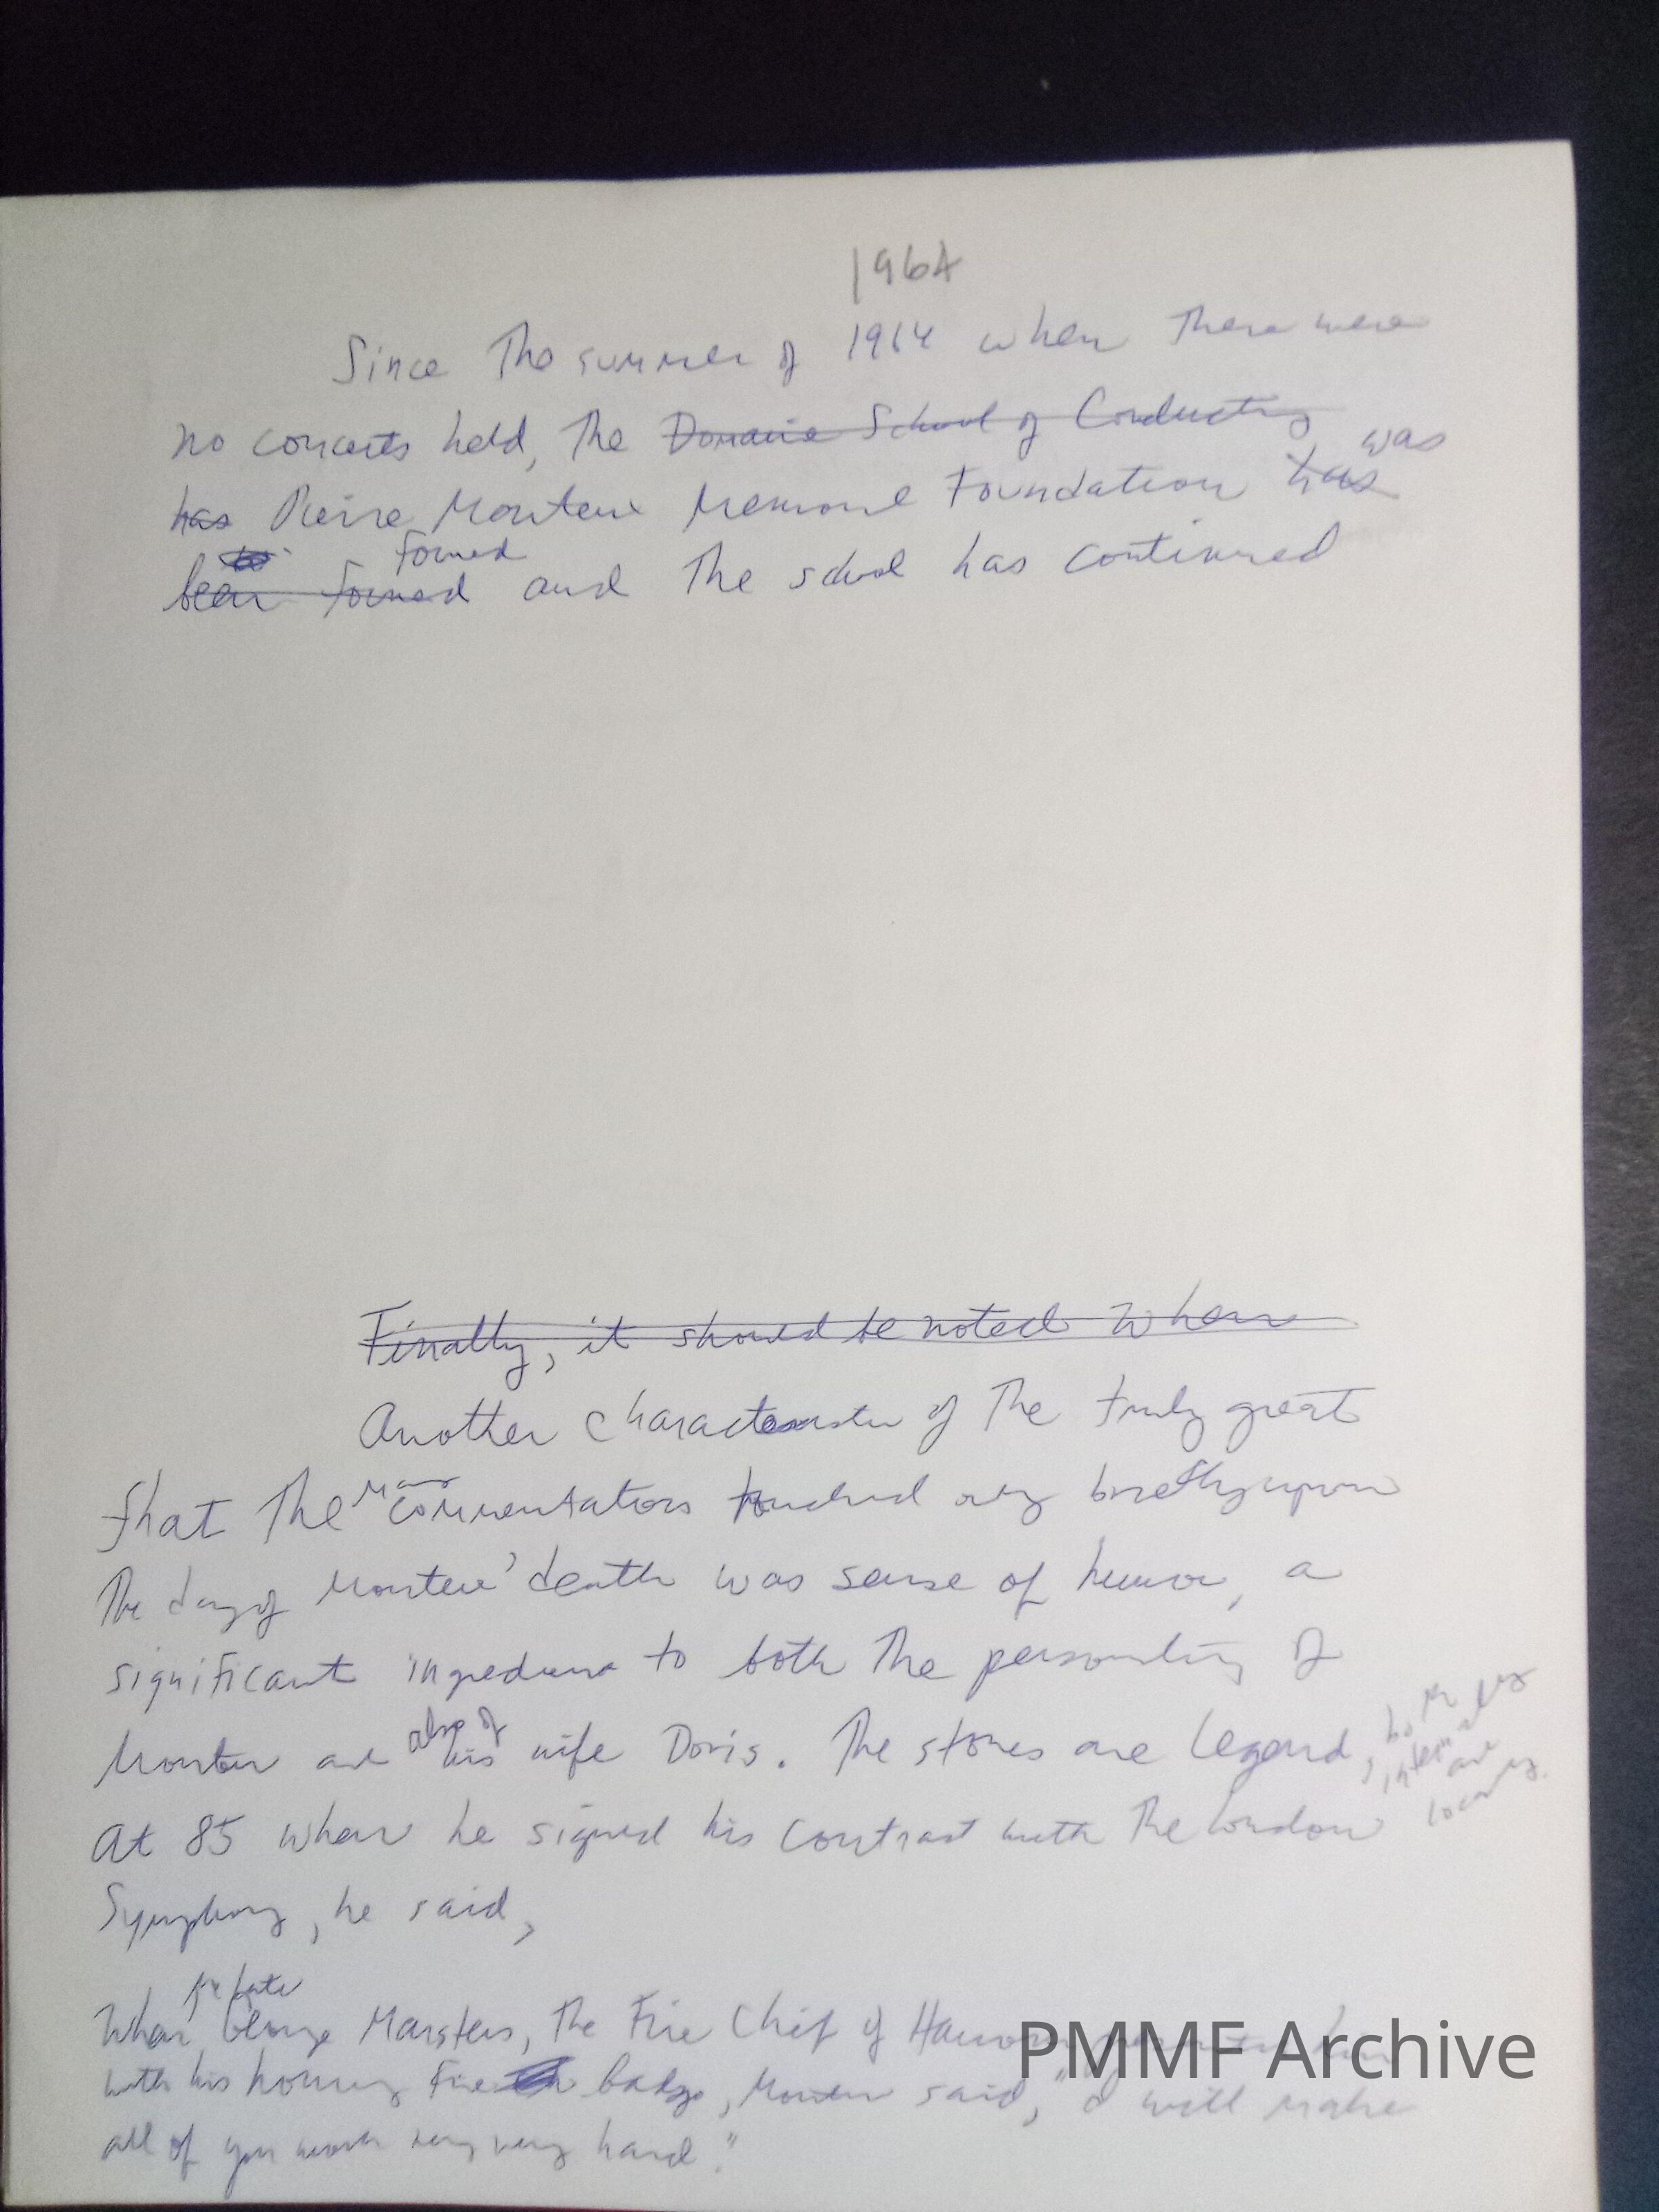 1964
Since The summer of 1964 when There were
no concerts held, The Domaine School of Conducting
has Pierre Monteux Memorial Foundation has was
been formed formed and The school has continued
Finally, it should be noted when
Another characteristic of The truly great
that The many commentators touched very briefly upon
The day of Monteux' death was sense of humor, a
significant ingredient to both The personality of
Monteux and also of his wife Doris. The stories are legend, both
at 85 when he signed his contract with The London
Symphony, he said,
When the late George Marsters, The Fire Chief of Hancock,
with his honorary Fire badge, Monteux said, "I will make
all of you work very very hard."
PMMF Archive